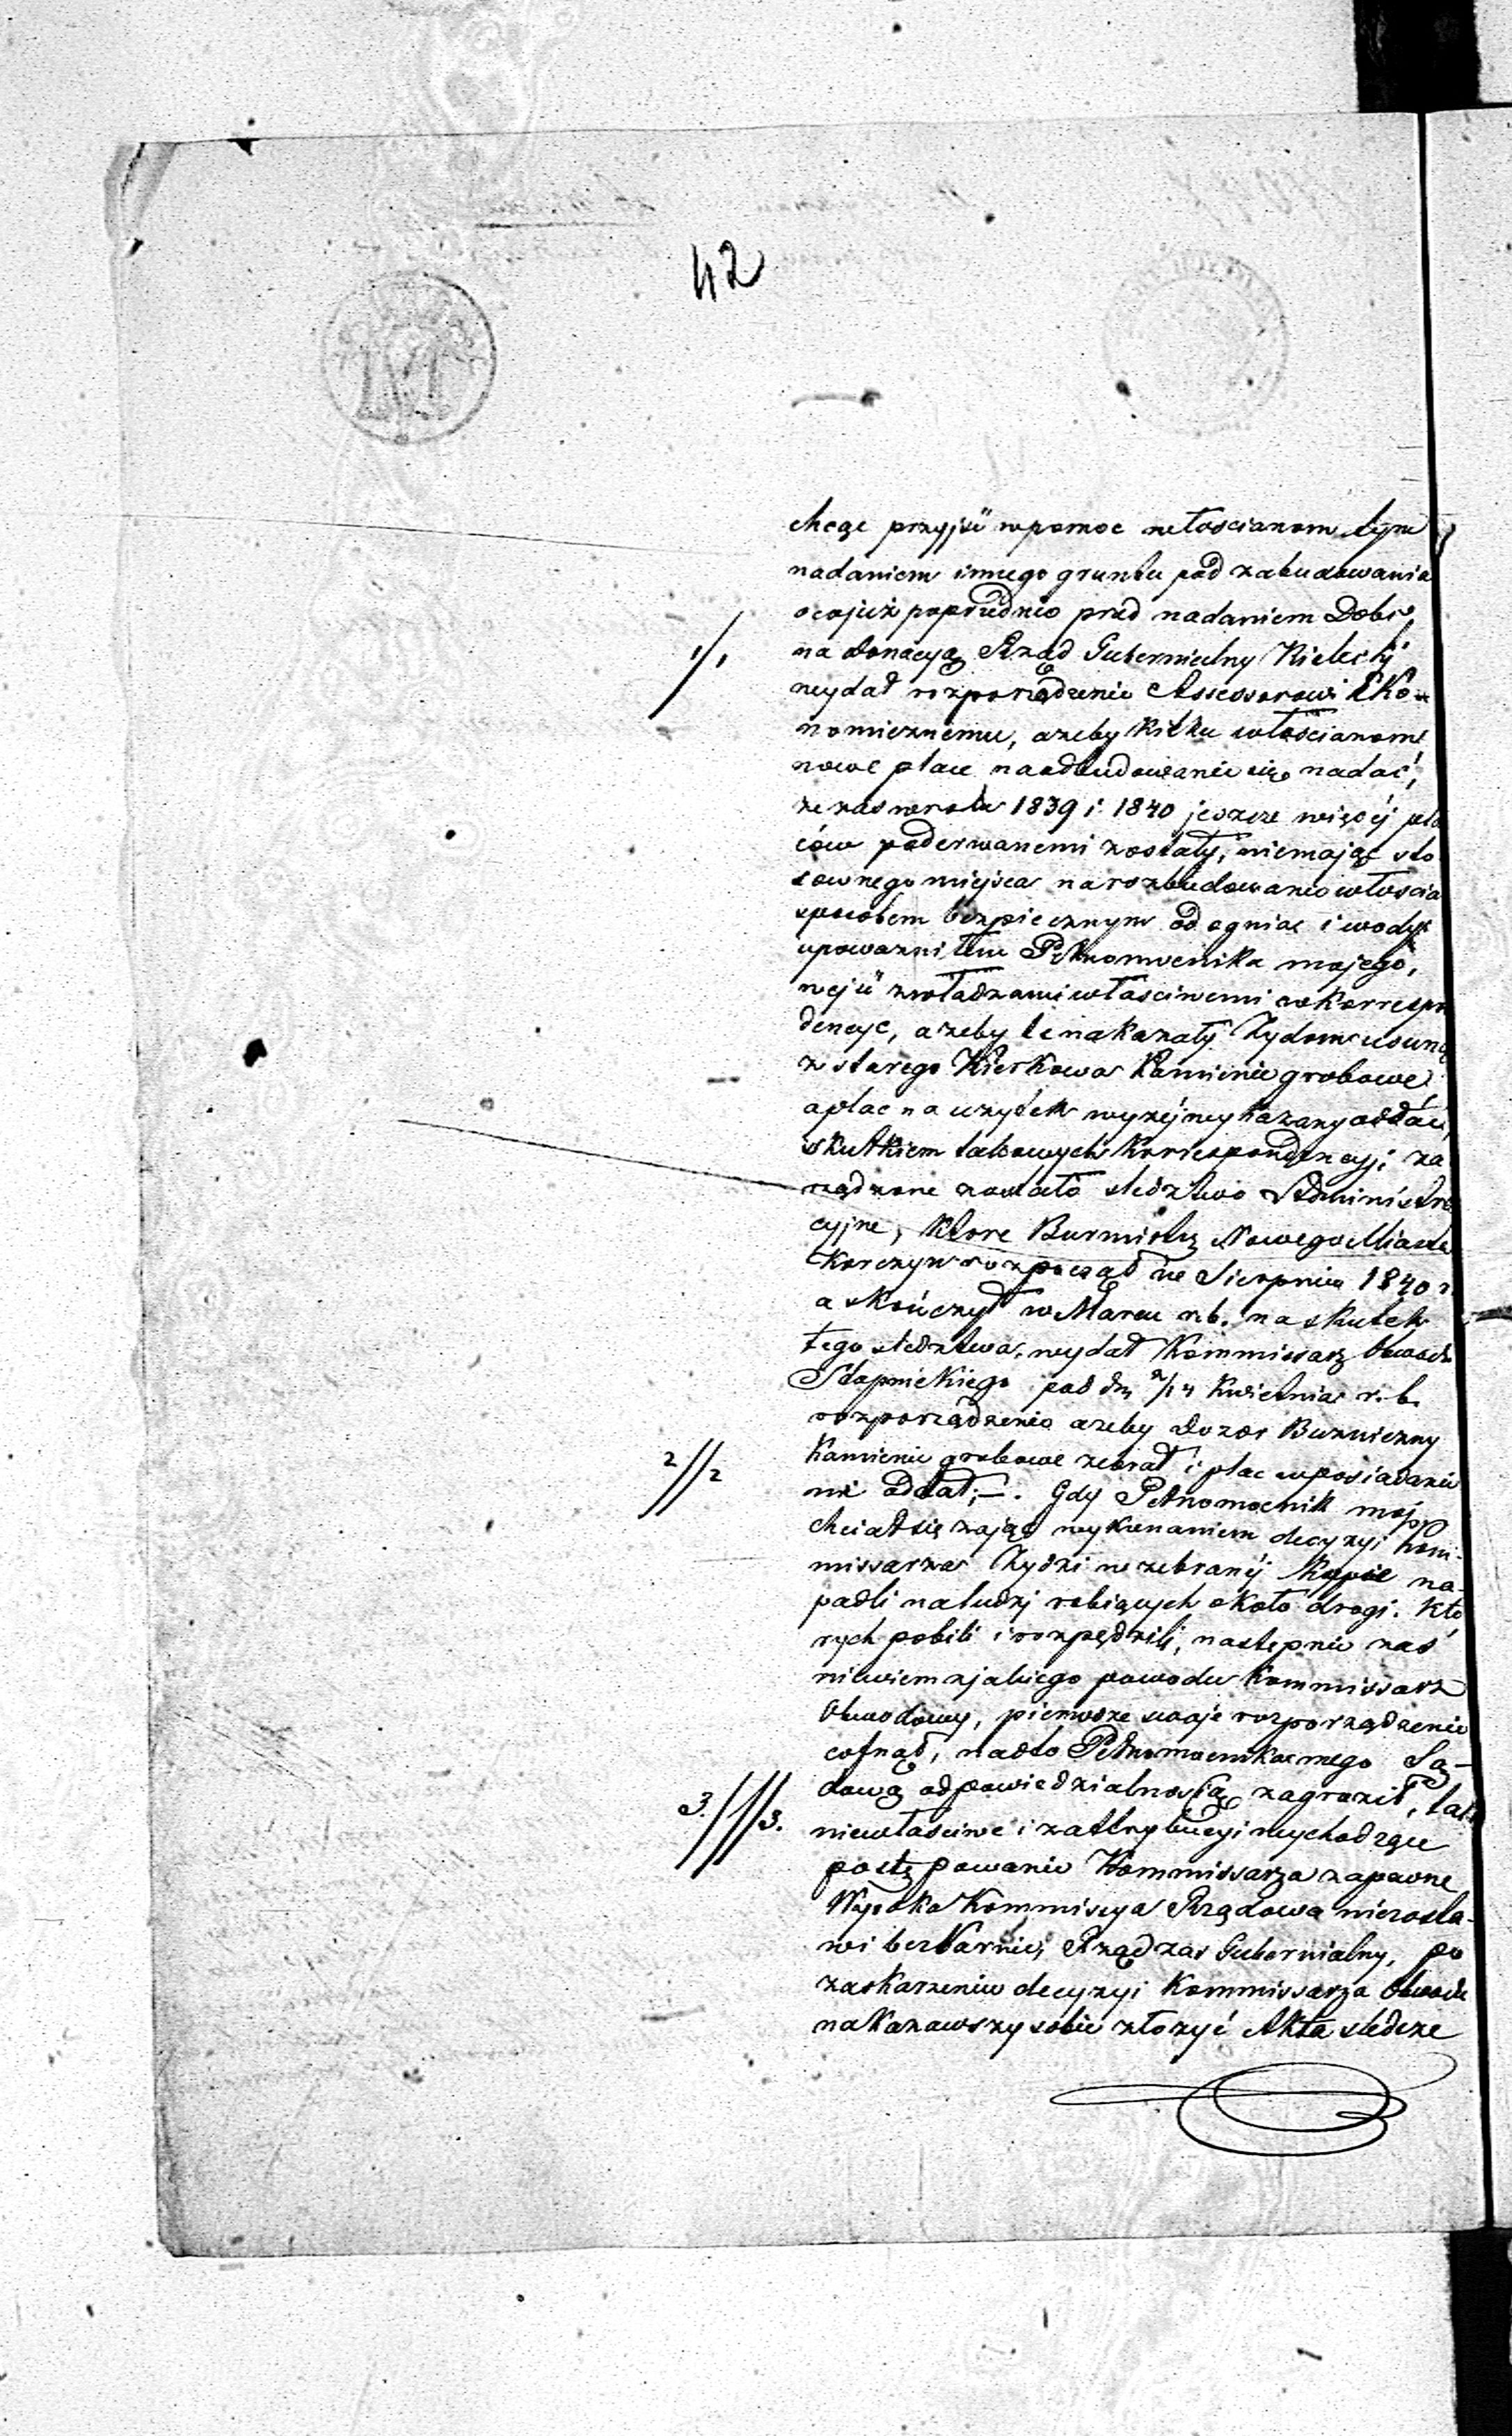 42
chcąc przyjść w pomoc włościanom tym
nadaniem innego gruntu pod zabudowania
o co już poprzednio przed nadaniem Dobr
1// 1 na donacyą Rząd Gubernialny Kielecki
wydał rozporządzenie Assessorowi Eko-
nomicznemu, ażeby kilku włościanom
nowe place na odbudowanie się nadać,
że zaś w roku 1839 i 1840 jeszcze więcéj pla
ców poderwanemi zostały, niemając sto
sownego miejsca na rozbudowanie włościa
sposobem bezpiecznym od ognia i wody
upoważniłem Pełnomocnika mojego,
wejść z władzami właściwemi w korrespon
dencye, ażeby te nakazały Żydom usunąć
z starego Kierkowa Kamienie grobowe,
a plac na użytek wyżéj wykazany oddać,
skutkiem takowych Korrespondencyi za
rządzone zostało śledztwo Administra
cyjne, które Burmistrz Nowego Miasta
Korczyn rozpoczął we Sierpniu 1840 r.
a skończył w Marcu r.b. na skutek
tego śledztwa, wydał Kommissarz Obwodu
Stopnickiego pod dn 2/14 Kwietnia r.b.
rozporządzenie ażeby Dozór Bużniczny
2// 2 Kamienie grobowe zebrał i plac w posiadanie
mi oddał; —. Gdy Pełnomocnik mój
chciał się zająć wykonaniem decyzyi Kom-
missarza Żydzi w zebranéj Kupie na-
padli na ludzi robiących około drogi. któ
rych pobili i rozpędzili, następnie zaś
niewiem z jakiego powodu Kommissarz
Obwodowy, pierwsze swoje rozporządzenie
cofnął, nadto Pełnomocnika mego Są-
3./// 3. dową odpowiedzialnością zagroził, tak
niewłaściwe i z attrybucyi wychodzące
postępowanie Kommissarza zapewne
Wysoka Kommissya Rządowa niezosta-
wi bezkarnie; Rząd zaś Gubernialny, po
zaskarzeniu decyzyi Kommissarza Obwodu
nakazawszy sobie złożyć Akta śledcze